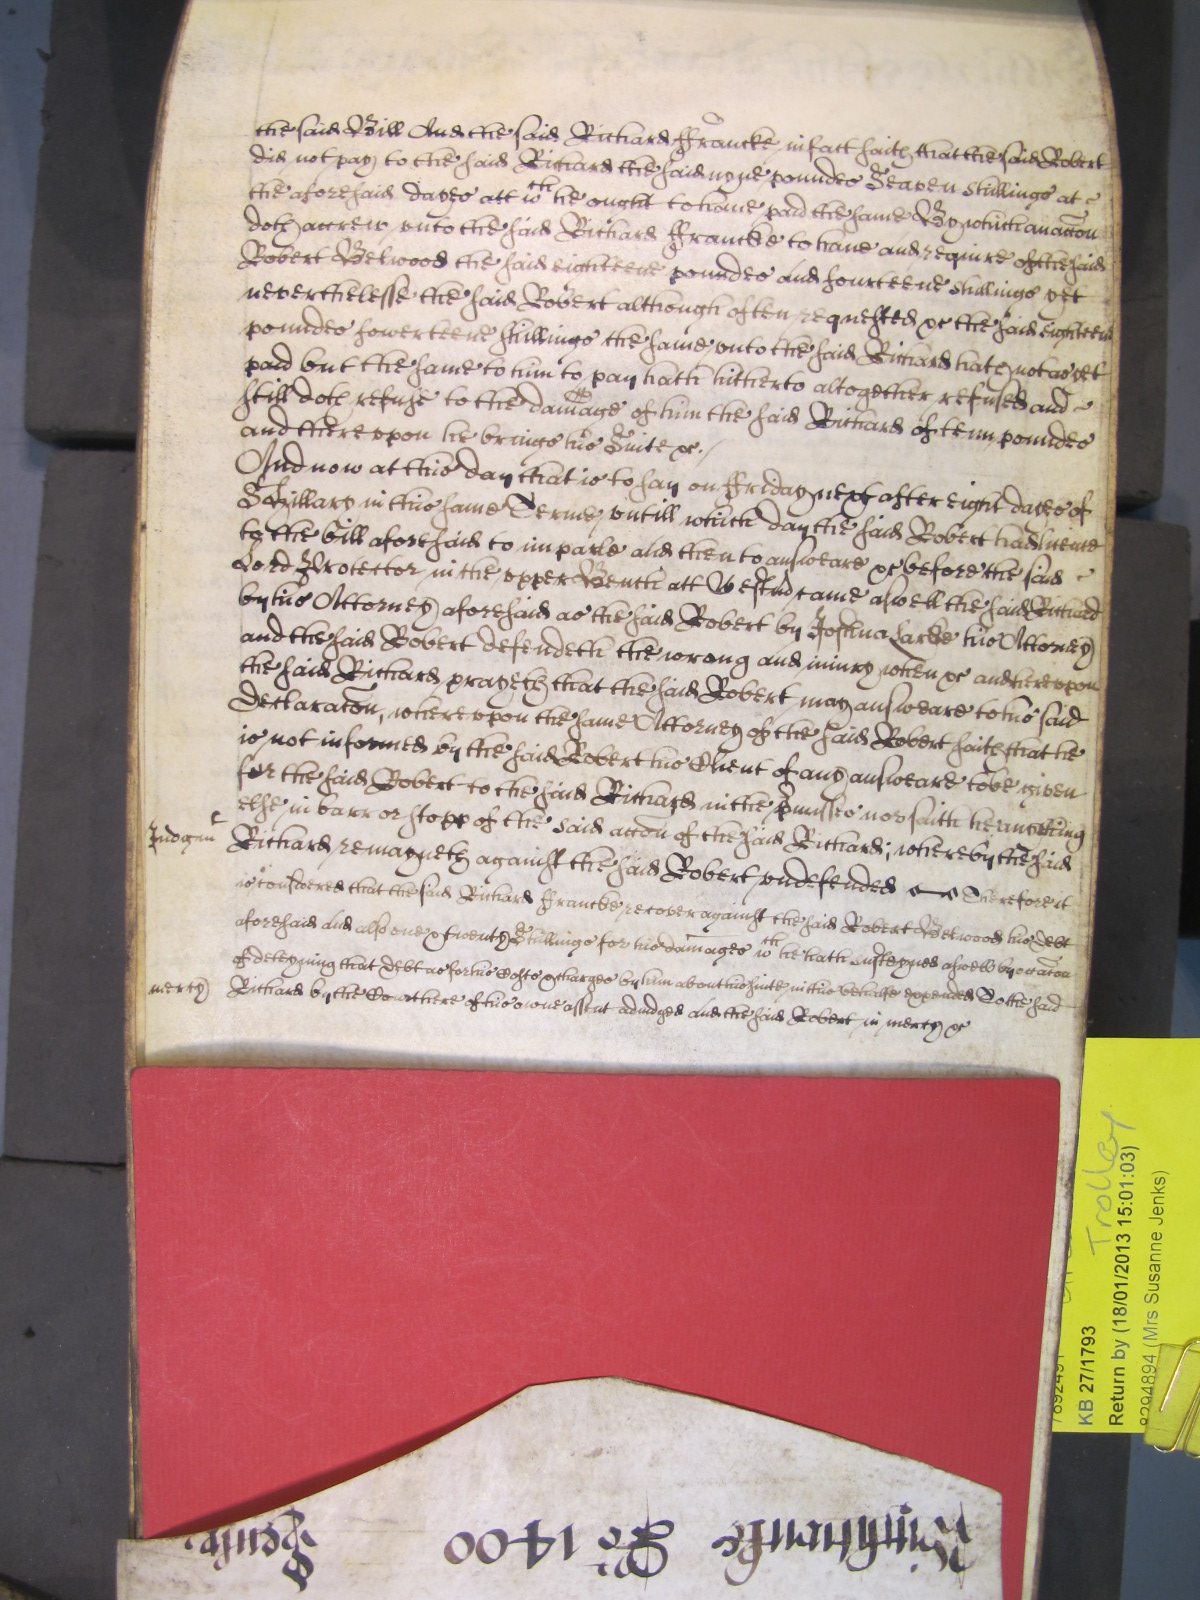 the said Bill And the said Richard ffrancke in fact saith that the said Robert
did not pay to the said Richard the said nyne poundes Seaven shillings at
the aforesaid dayes att wch he ought to have paid the same By which an accon
doth accrew unto the said Richard ffrancke to have and require of the said
Robert Betwood the said eighteene poundes and fourteene shillings yet
neverthelesse the said Robert although often requested &c the said eighteen
poundes fowerteene shillings the same unto the said Richard hath not as yet
paid but the same to him to pay hath hitherto altogether refused and
still doth refuse to the damage of him the said Richard of tenn poundes
and thereupon he brings his Suite &c /
And now at this day that is to say on ffriday next after eight dayes of
St Hillary in this same Terme untill which day the said Robert had leave
to the bill aforesaid to imparle and then to answeare &c before the said
Lord Protector in the upper Bench att Westmr came aswell the said Richard
by his Attorney aforesaid as the said Robert by Joshua Larke his Attorney
and the said Robert defendeth the wrong and iniury when &c and hereupon
the said Richard prayeth that the said Robert may answeare to his said
declaracon, whereupon the same Attorney of the said Robert saith that he
is not informed by the said Robert his Client of any answeare to be given
for the said Robert to the said Richard in the pmisses nor saith he anything
else in barr or stopp of the said accon of the said Richard; whereby the said
Judgmt
Richard remayneth against the said Robert undefended Therefore it
is considered that the said Richard ffrancke recover against the said Robert Betwood his debt
aforesaid and also one & twenty Shillings for his damages wch he hath susteyned aswell by occacon
of deteyning that debt as for his Costs & charges by him about his suite in this behalfe expended To the said
mercy
Richard by the Court here of his owne assent adiudged And the said Robert in mercy &c
KB 27/1793
Return by (18/01/2013 15:01:03)
8294894 (Mrs Susanne Jenks)
Trolley
Ro: 1400